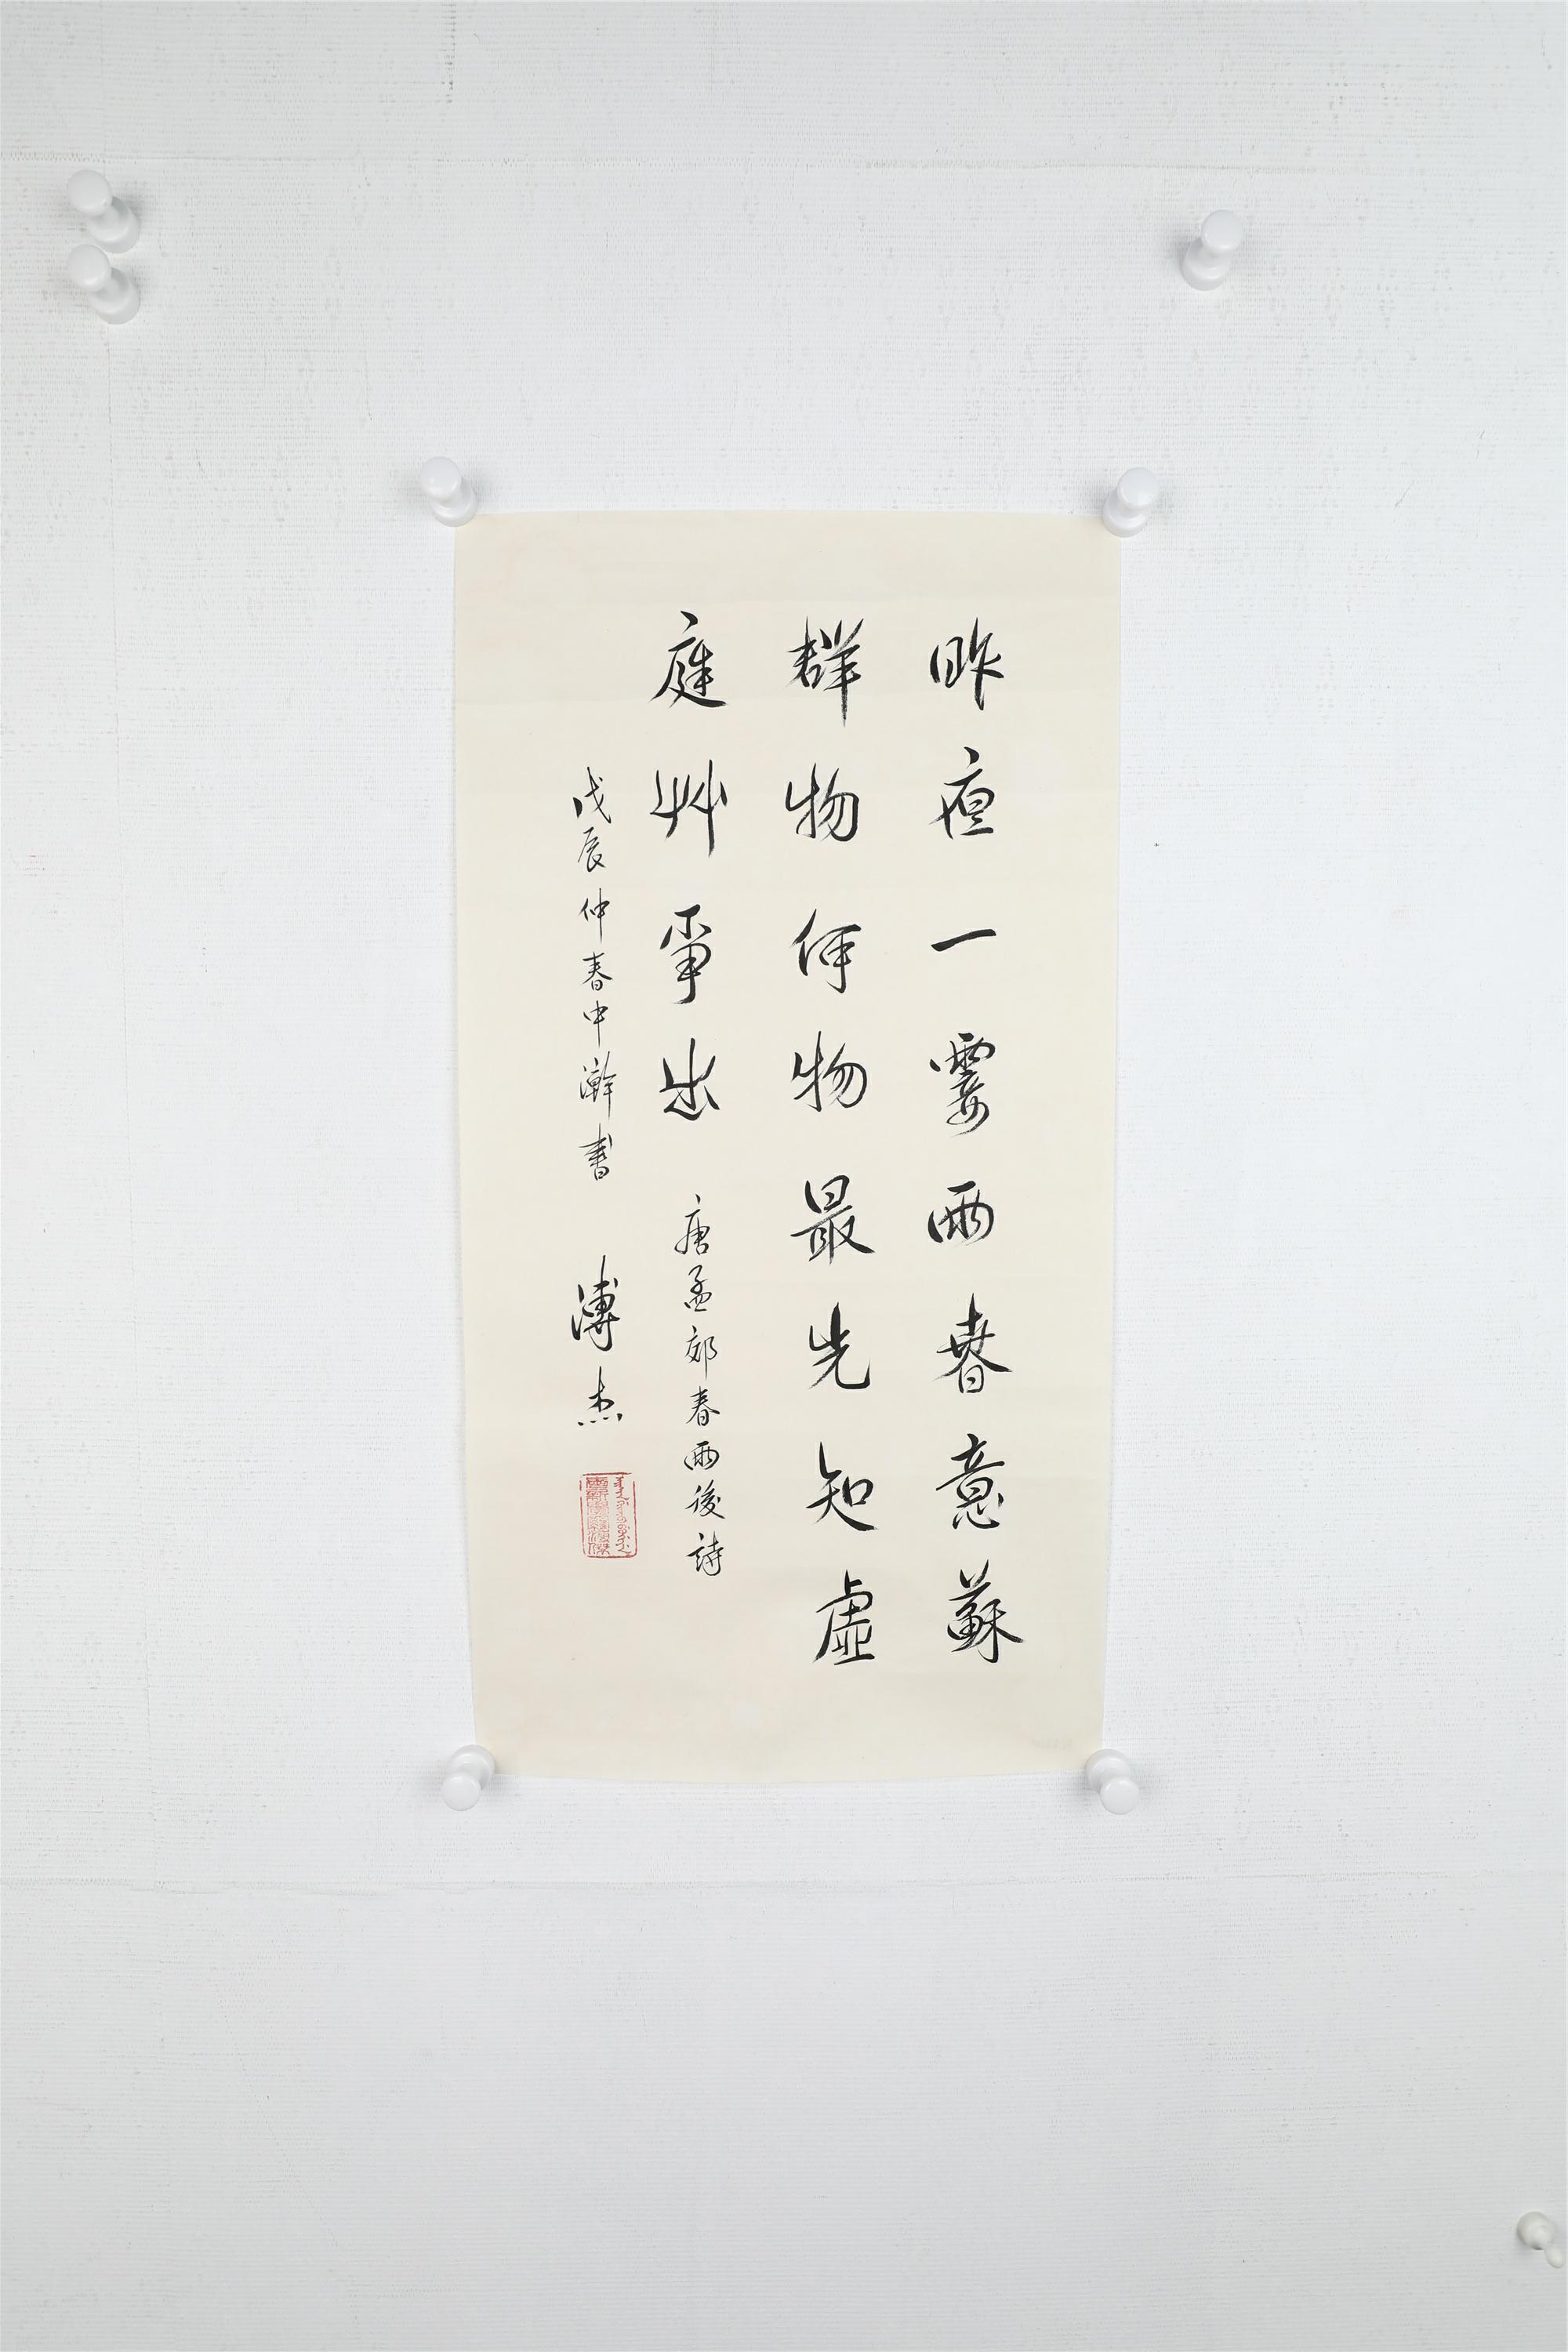 昨亱一霎雨春意蘇
群物何物最先知虛
庭艸爭出 唐孟郊春雨後詩
戊辰仲春中澣書 溥杰
愛新覺羅溥傑